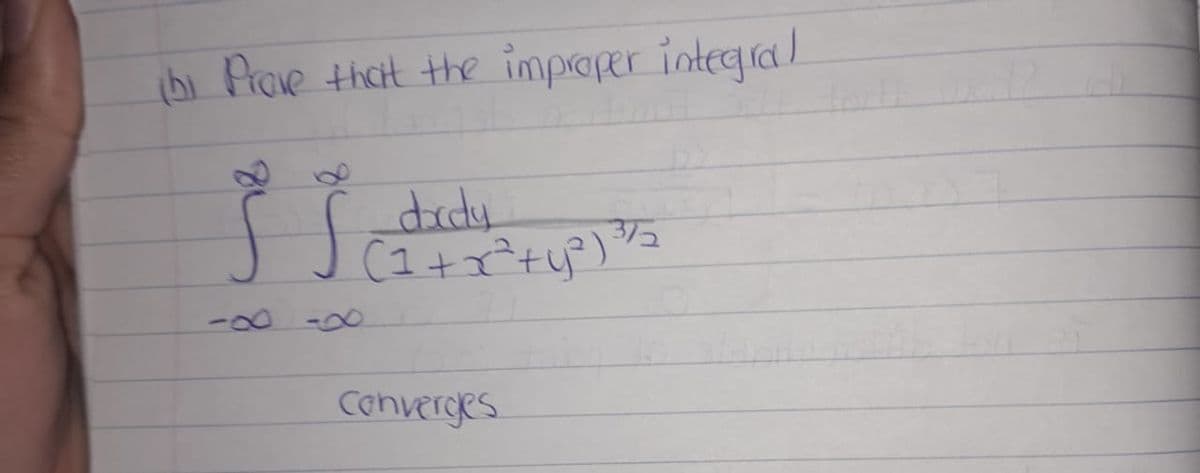 (b) Prove that the improper integral
∞ ∞
∫ ∫ dxdy / (1+x²+y²)^3/2
-∞ -∞
converges